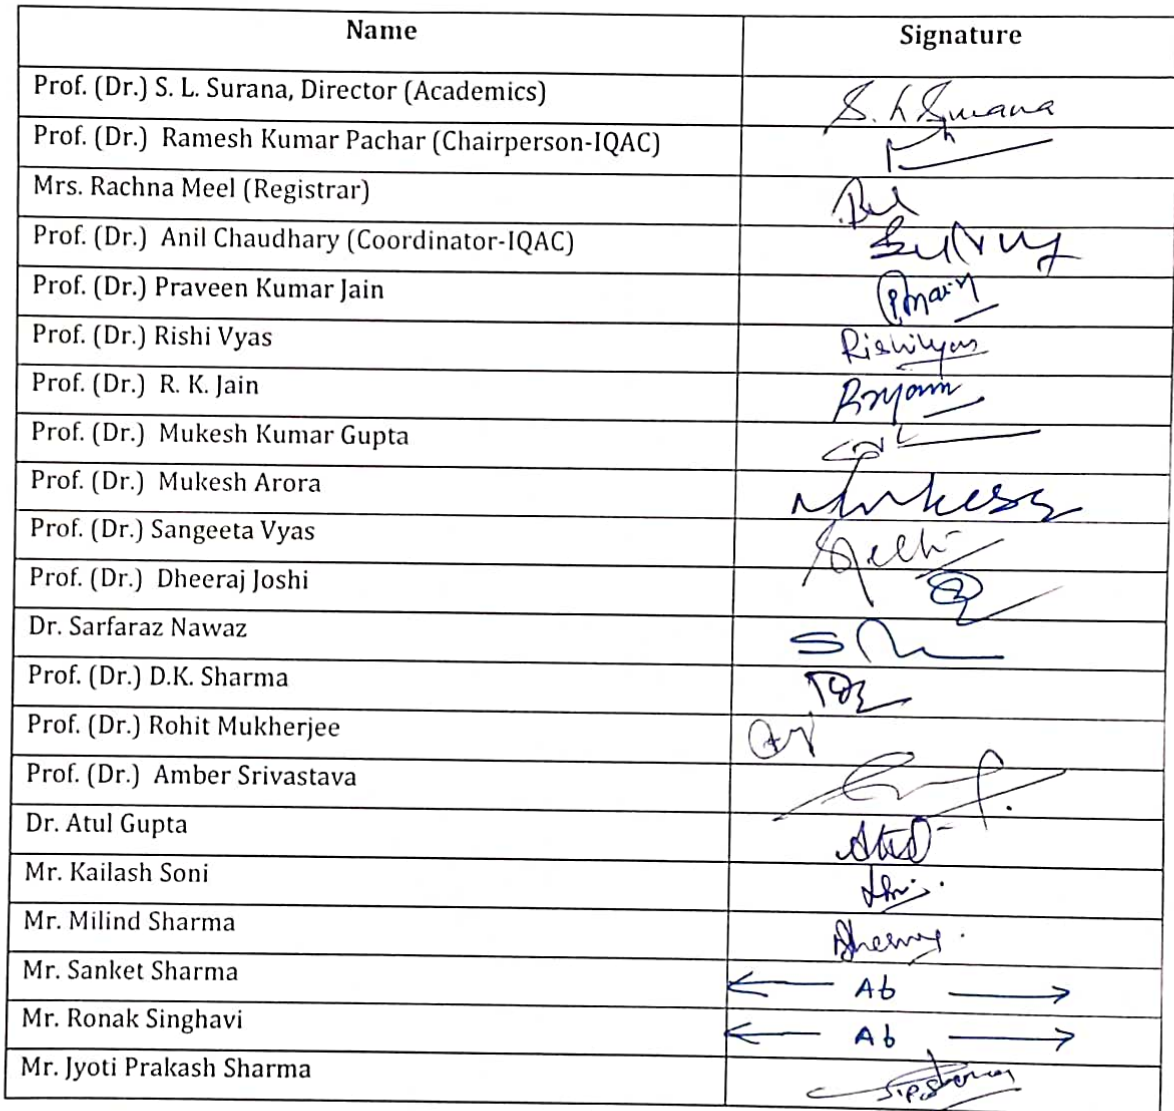 Name Signature
Prof. (Dr.) S. L. Surana, Director (Academics) S. L Surana
Prof. (Dr.) Ramesh Kumar Pachar (Chairperson-IQAC)
Mrs. Rachna Meel (Registrar)
Prof. (Dr.) Anil Chaudhary (Coordinator-IQAC)
Prof. (Dr.) Praveen Kumar Jain
Prof. (Dr.) Rishi Vyas Rishi Vyas
Prof. (Dr.) R. K. Jain
Prof. (Dr.) Mukesh Kumar Gupta
Prof. (Dr.) Mukesh Arora Mukesh
Prof. (Dr.) Sangeeta Vyas
Prof. (Dr.) Dheeraj Joshi
Dr. Sarfaraz Nawaz
Prof. (Dr.) D.K. Sharma
Prof. (Dr.) Rohit Mukherjee
Prof. (Dr.) Amber Srivastava
Dr. Atul Gupta
Mr. Kailash Soni
Mr. Milind Sharma
Mr. Sanket Sharma Ab
Mr. Ronak Singhavi Ab
Mr. Jyoti Prakash Sharma